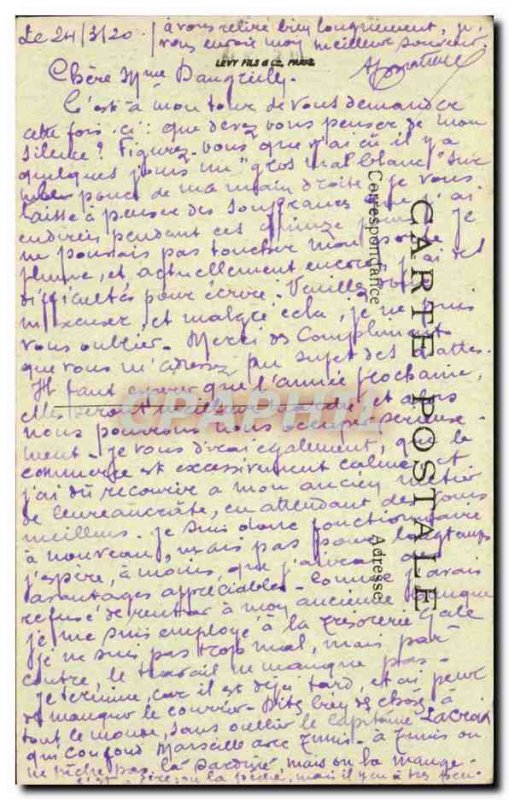 Le 24/3/20.
à vous relire bien longuement, je
vous envoie mon meilleur souvenir
LEVY FILS & CIE, PARIS
Chère Mme
C'est à mon tour de vous demander
cette fois-ci: que devez vous penser de mon
silence? Figurez-vous que j'ai eu il y a
quelques jours un "gros mal blanc" sur
pouce de ma main droite. Je vous
laisse à penser des souffrances que j'ai
endurées pendant ces quinze jours. Je
ne pouvais pas toucher mon porte
plume, et actuellement encore j'ai des
difficultés pour écrire. Veuillez
m'excuser, et malgré cela, je ne puis
vous oublier. Merci des compliments
que vous m'adressez au sujet des dattes.
Il faut espérer que l'année prochaine,
elles seront et alors
nous pourrons nous occuper sérieuse-
ment. Je vous dirai également, que le
commerce est excessivement calme, et
j'ai dû recourir à mon ancien métier
de bureaucrate, en attendant de
meilleurs. Je suis donc fonctionnaire
à nouveau, mais pas pour longtemps
j'espère, à moins que
avantages appréciables. Comme j'avais
refusé de rentrer à mon ancienne banque
je me suis employé à la Trésorerie Gale
Je ne suis pas trop mal, mais par-
contre, le travail ne manque pas.
Je termine, car il est déjà tard, et
de manquer le courrier. Dites bien des choses à
tout le monde, sans oublier le capitaine Lacroix
qui confond Marseille avec Tunis. A Tunis on
ne pêche pas la sardine, mais on la mange.
on la pêche, mais il y en a très peu.
CARTE POSTALE
Correspondance
Adresse
CPAPHIL